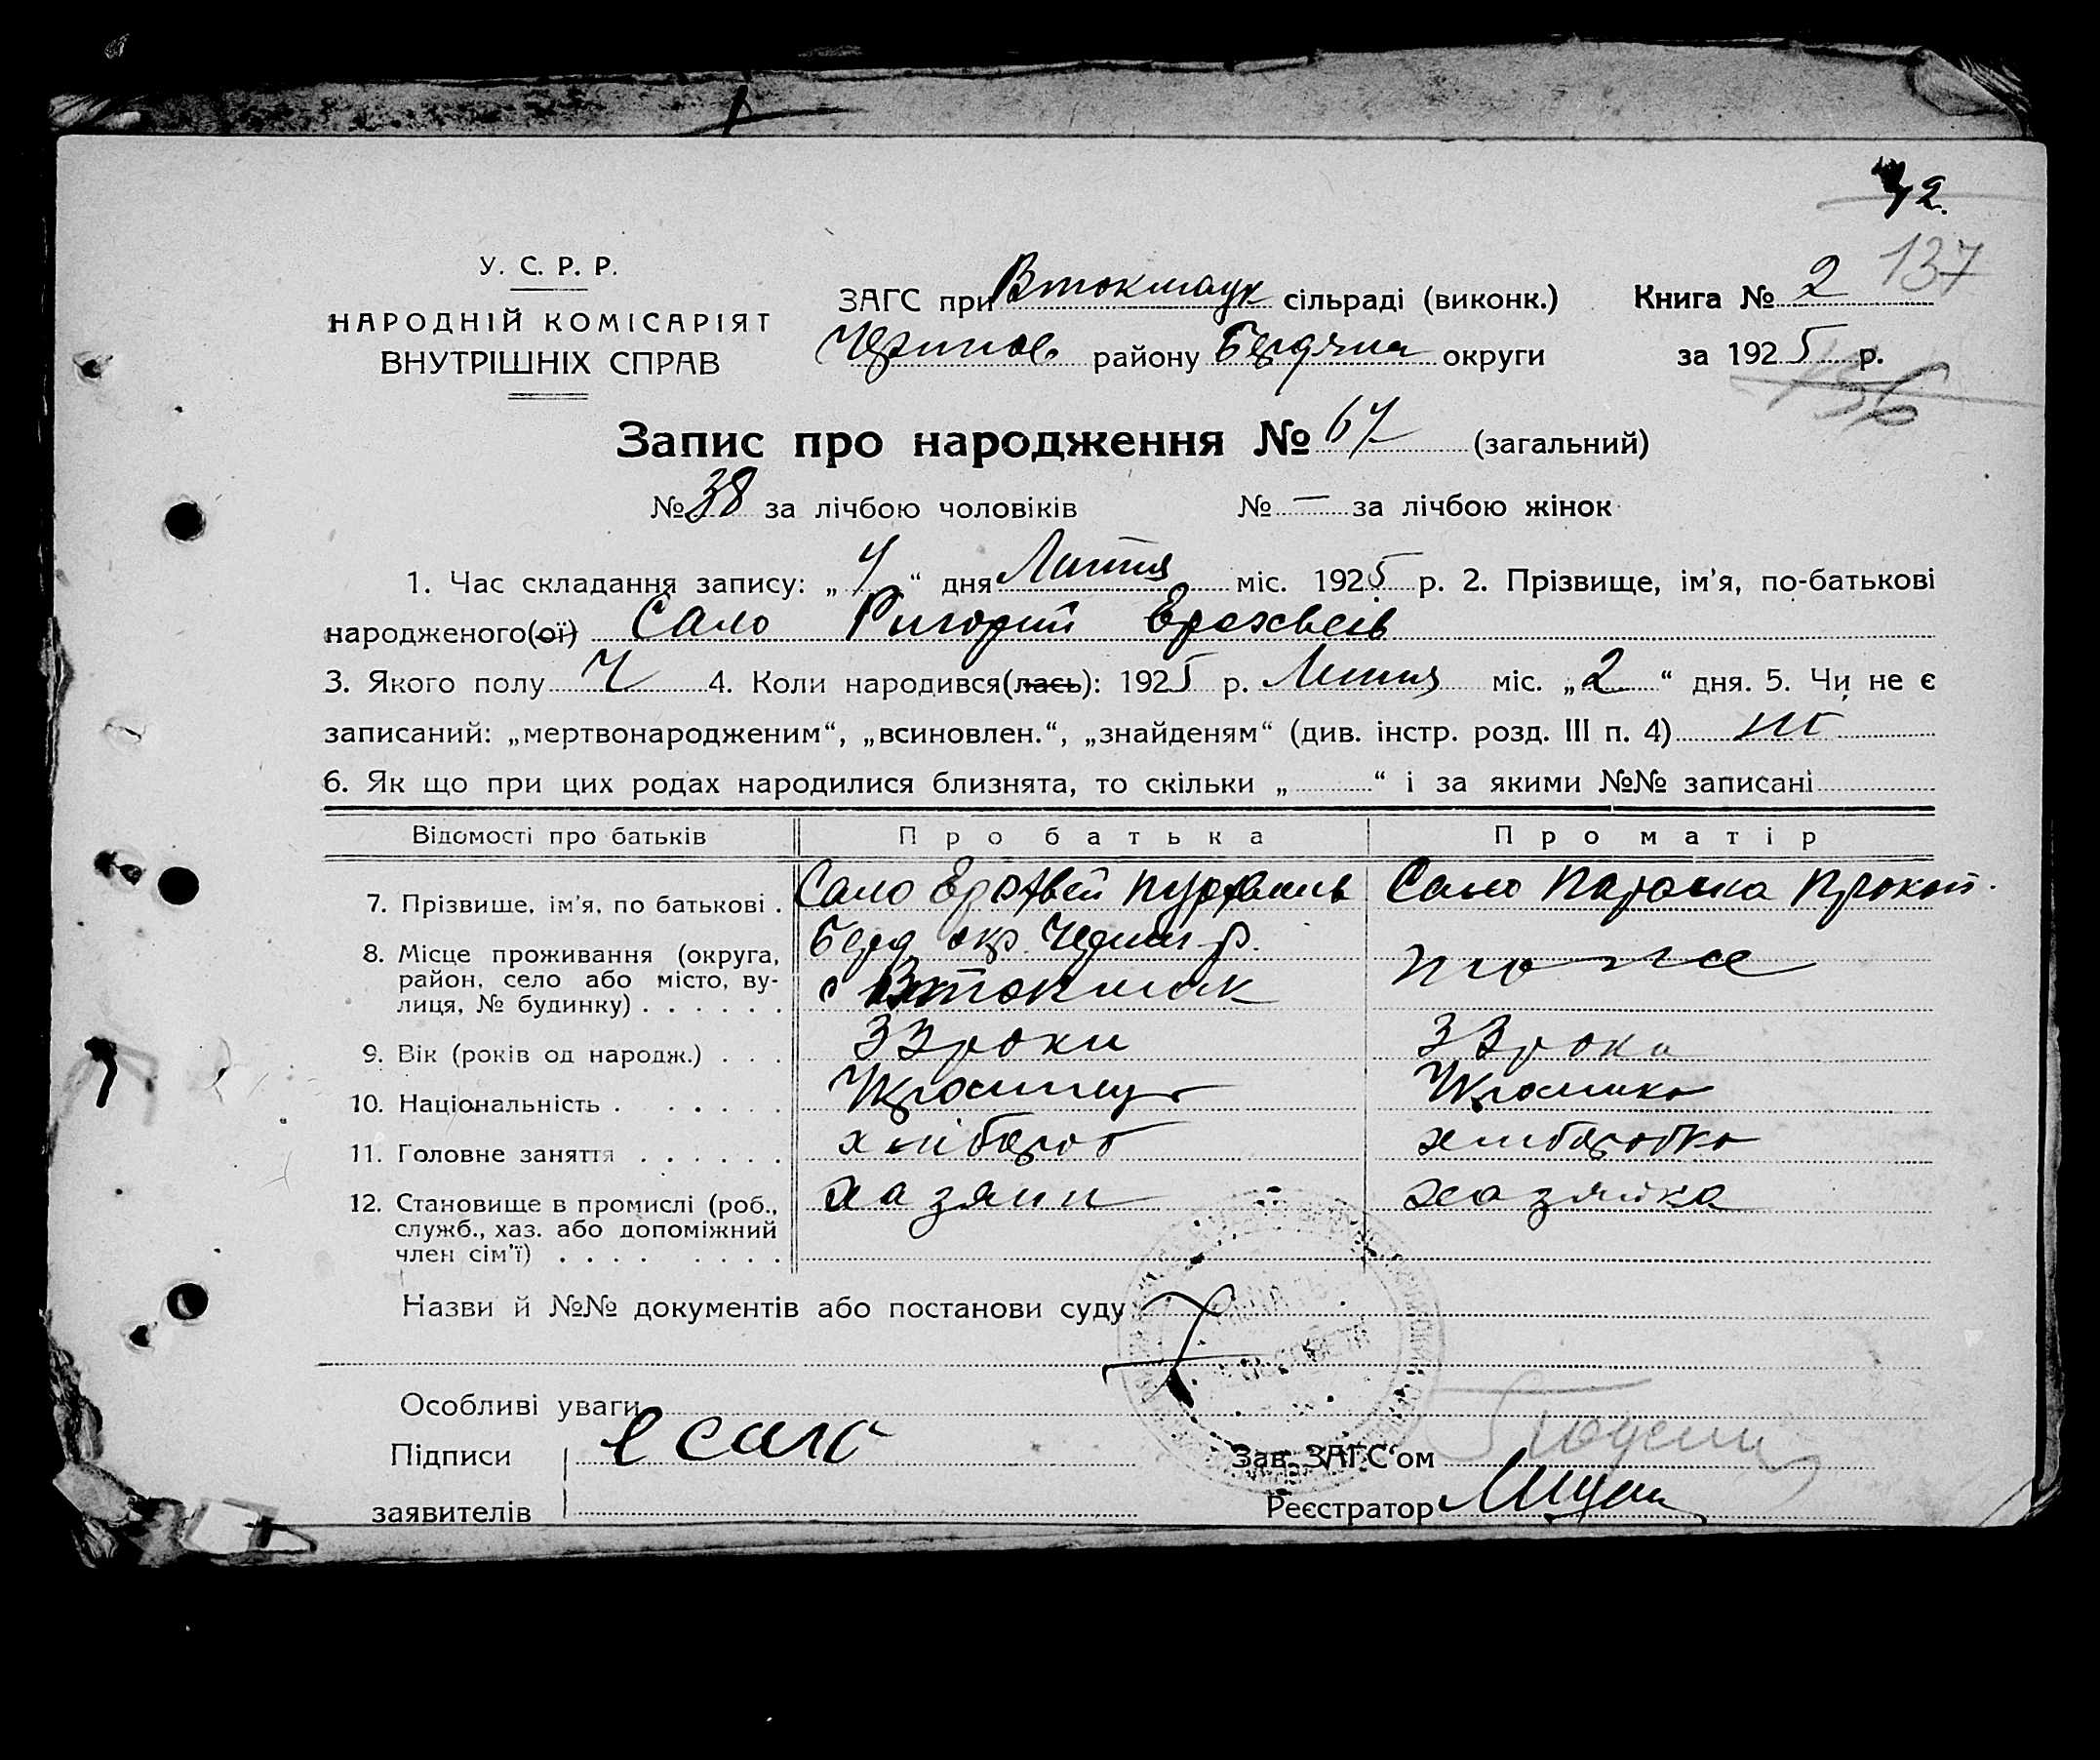 42.
137
У. С. Р. Р.
НАРОДНІЙ КОМІСАРІЯТ
ВНУТРІШНІХ СПРАВ
ЗАГС при Втокмацк сільраді (виконк.) Книга № 2
Черниг району Бердянс округи за 1925 р.
136
Запис про народження № 67 (загальний)
№ 38 за лічбою чоловіків № — за лічбою жінок
1. Час складання запису: „ 4 “ дня Липня міс. 1925 р. 2. Прізвище, ім’я, по-батькові
народженого(ої) Сало Григорий Ерохвеів
3. Якого полу Ч 4. Коли народився(лась): 1925 р. Липня міс. „ 2 “ дня. 5. Чи не є
записаний: „мертвонародженим“, „всиновлен.“, „знайденям“ (див. інстр. розд. III п. 4) ні
6. Як що при цих родах народилися близнята, то скільки „ “ і за якими №№ записані
Відомості про батьків Про батька Про матір
7. Прізвище, ім’я, по батькові . Сало Ерохвей Сало Параска Прокоп.
8. Місце проживання (округа, Берд окр. Черниг р. тоже
район, село або місто, ву-
лиця, № будинку) . . . . . . с Втокмак
9. Вік (років од народж.) . . . 33 роки 33 роки
10. Національність . . . . . . Украинец Украинка
11. Головне заняття . . . . . . хлібороб хлиборобка
12. Становище в промислі (роб., хазяин хазяйка
служб., хаз. або допоміжний
член сім’ї) . . . . . . . .
Назви й №№ документів або постанови суду
Особливі уваги
Підписи Е Сало Зав. ЗАГС‘ом
заявителів Реєстратор